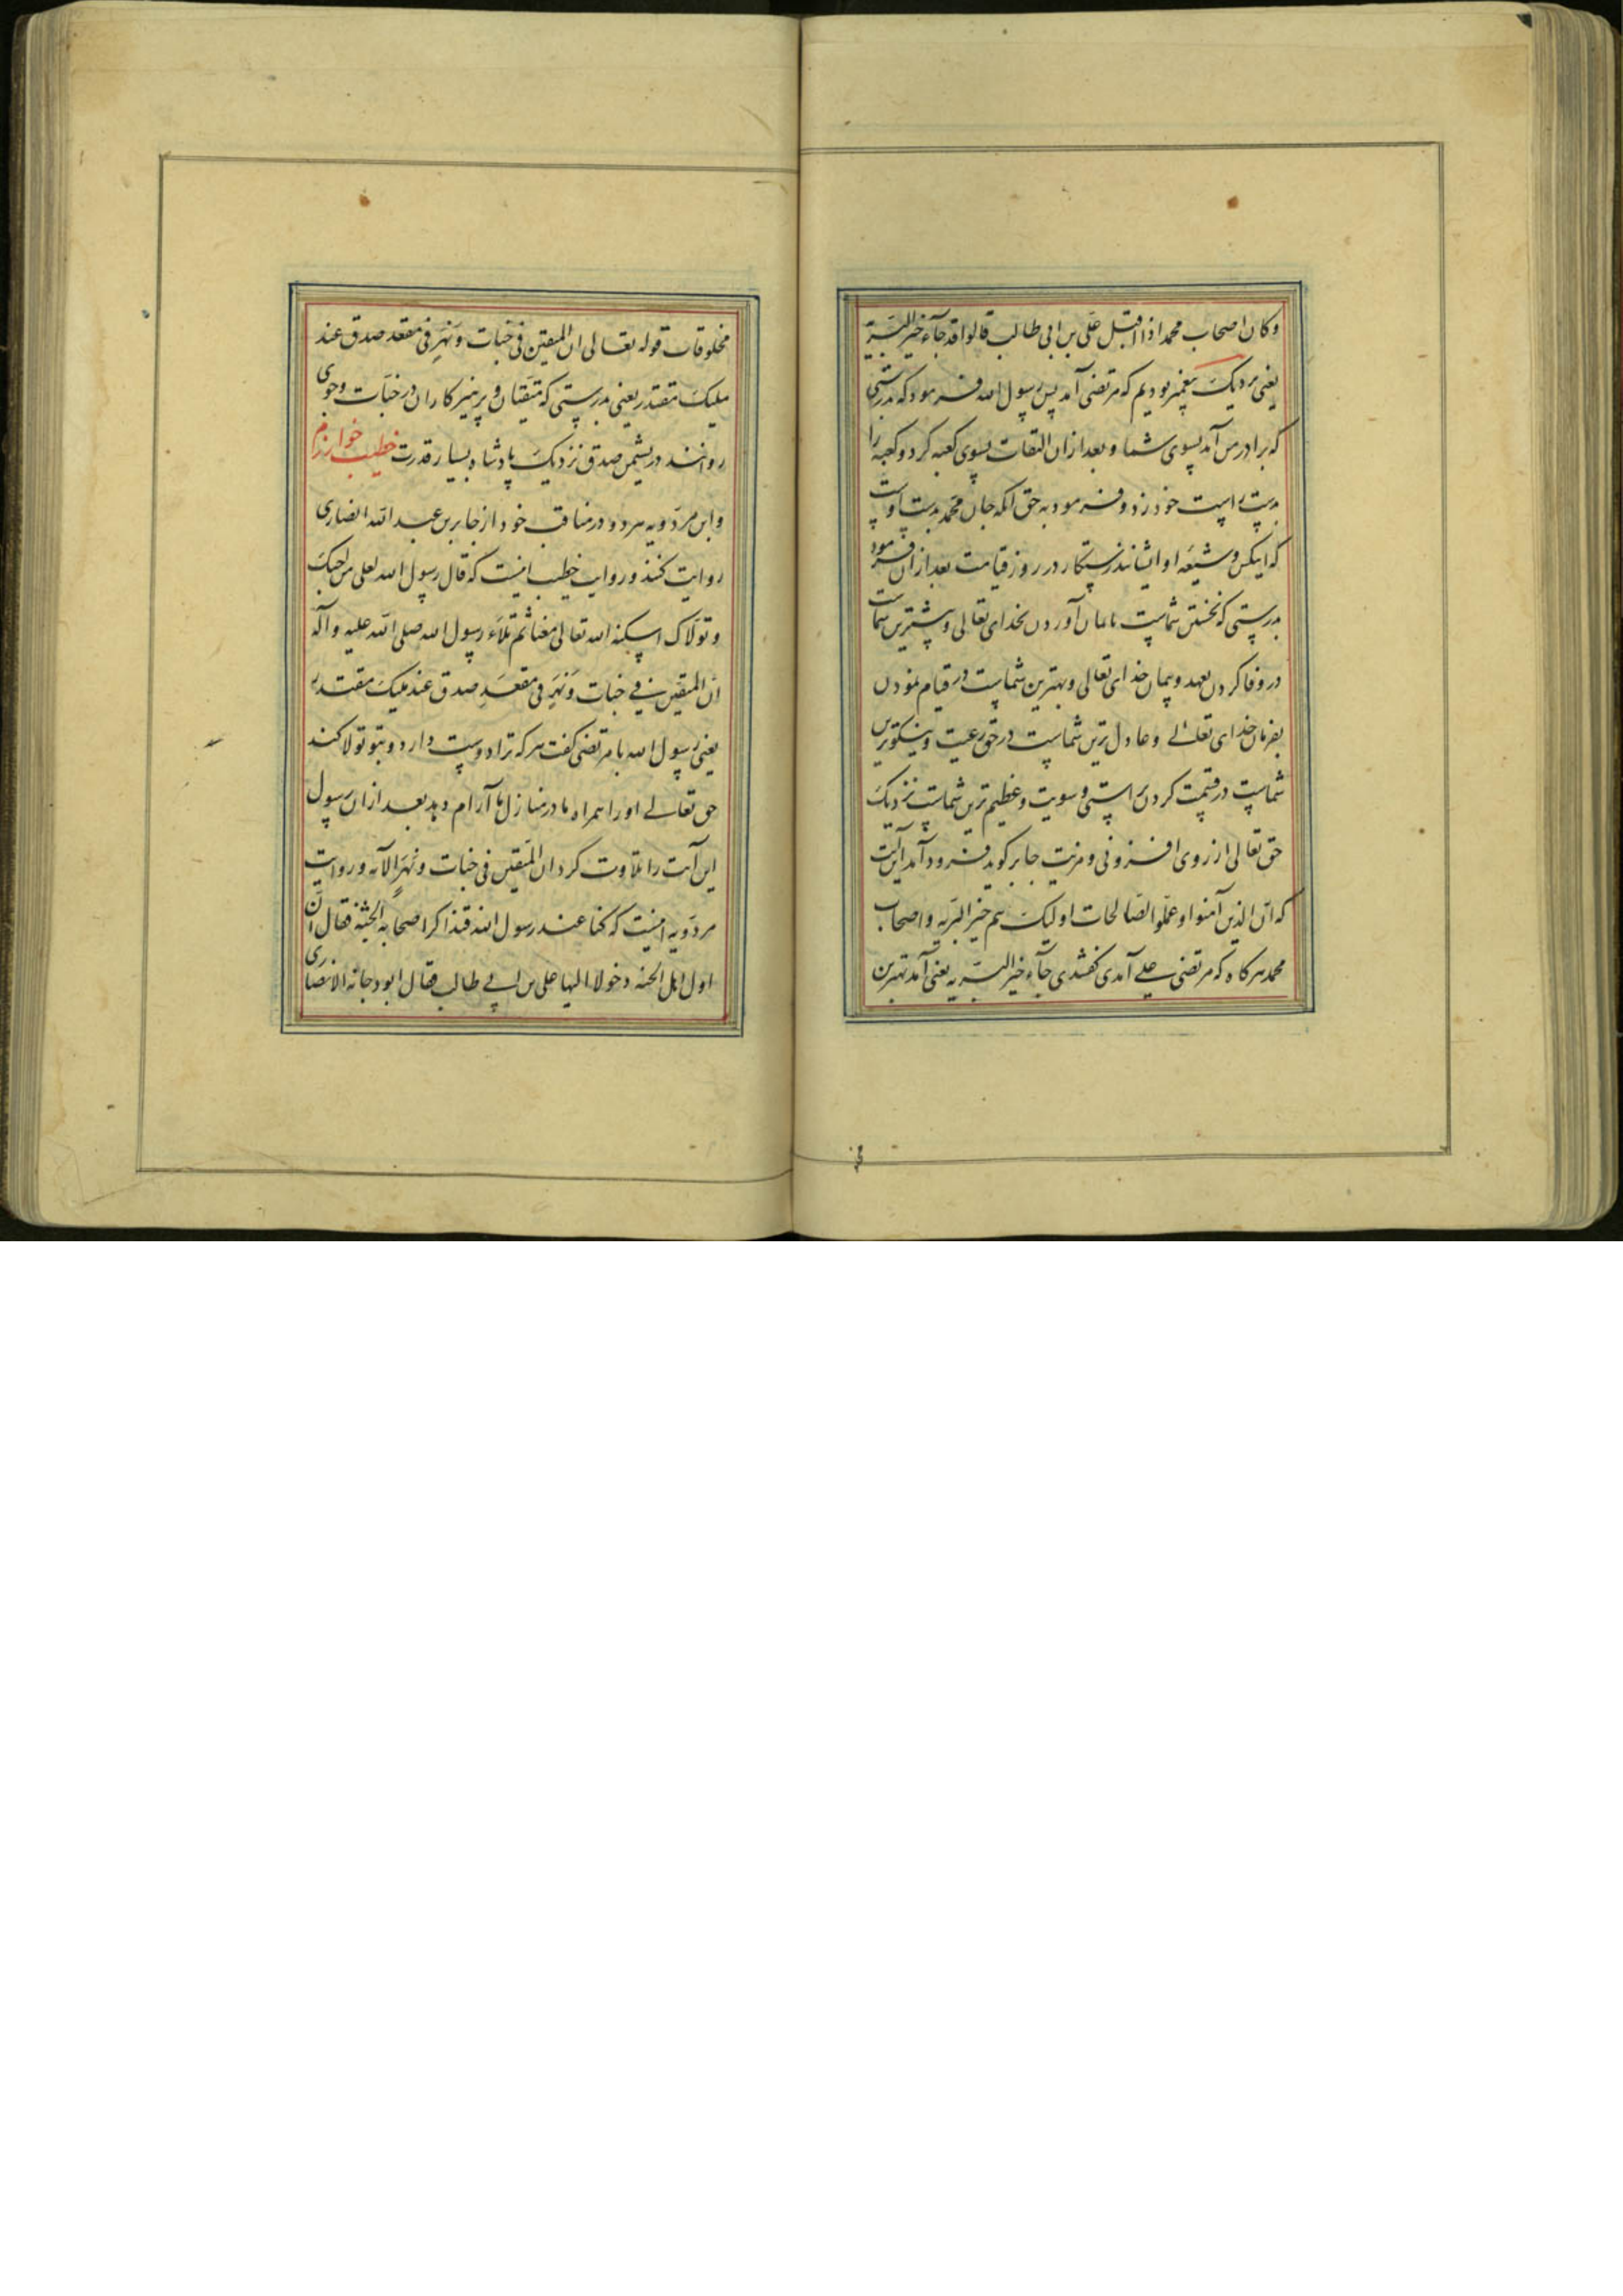 وکان اصحاب محمد اذا اقبل علی بن ابی طالب قالوا قد جآء خیر البریّة
یعنی نزدیک پیغمبر بودیم که مرتضی آمد پس رسول الله فرمود که بدرستی
که برادر من آمد بسوی شما و بعد ازان التفات بسوی کعبه کرد و کعبه را
بدست راست خود زد و فرمود به حق آنکه جان محمد بدست اوست
که اینکس و شیعه او ایشانند رستکار در روز قیامت بعد ازان فرمود
بدرستی که نخستین شماست باایمان آوردن بخدای تعالی و بیشترین شماست
در وفا کردن بعهد و پیمان خدای تعالی و بهترین شماست در قیام نمودن
بفرمان خدای تعالی و عادل ترین شماست در حق رعیت و نیکوترین
شماست در قسمت کردن براستی و سویت و عظیم ترین شماست نزدیک
حق تعالی از روی افزونی و مزیت جابر کوید فرود آمد این آیت
که انّ الذین آمنوا و عملوا الصّالحات اولیک هم خیر البریه و اصحاب
محمد هر کاه که مرتضی علی آمدی کفتندی جآء خیر البریه یعنی آمد بهترین
مخلوقات قوله تعالی ان المتقین فی جنات و نهر فی مقعد صدق عند
ملیک مقتدر یعنی بدرستی که متقیان و پرهیزکاران در جنات و جوی
روانند در نشیمن صدق نزدیک پادشاه بسیار قدرت خطیب خوارزم
و ابن مردویه هر دو در مناقب خود از جابر بن عبد الله انصاری
روایت کنند و روایت خطیب اینست که قال رسول الله لعلی من احبک
و تولاک اسکنه الله تعالی معنا ثم تلاء رسول الله صلی الله علیه و آله
انّ المتقین فی جنات و نهر فی مقعد صدق عند ملیک مقتدر
یعنی رسول الله با مرتضی کفت هر که ترا دوست دارد و بتو تولا کند
حق تعالی او را همراه ما در منازل ما آرام دهد بعد ازان رسول
این آیت را تلاوت کرد ان المتقین فی جنات و نهر الآیه و روایت
مردویه اینست که کنا عند رسول الله فتذاکر اصحابه الجنة فقال انّ
اول اهل الجنه دخولا الیها علی بن ابی طالب فقال ابو دجانه الانصاری